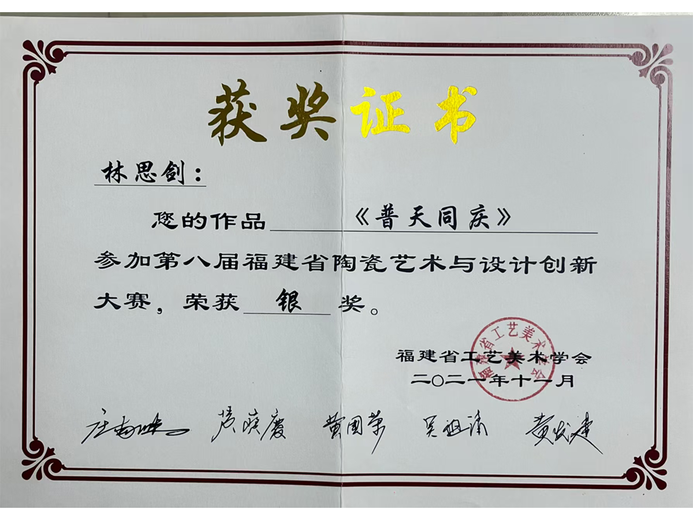 获奖证书
林思剑：
您的作品 《普天同庆》
参加第八届福建省陶瓷艺术与设计创新
大赛，荣获 银 奖。
福建省工艺美术学会
二〇二一年十一月
福建省工艺美术学会
黄国荣